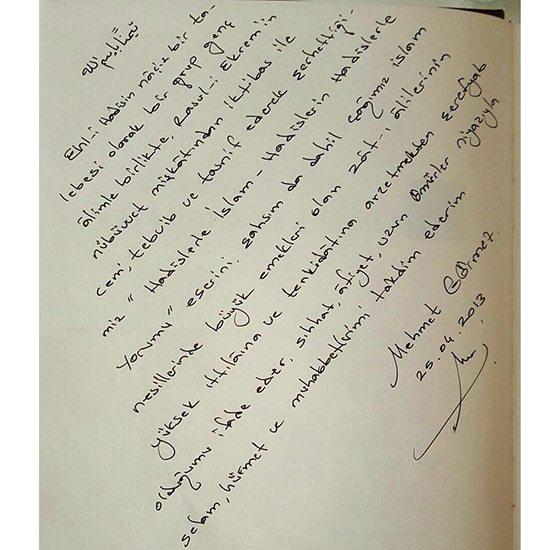 باسمه تعالى
Ehl-i Hadisin nâçiz bir ta-
lebesi olarak bir grup genç
âlimle birlikte, Rasul-i Ekrem'in
nübüvvet mişkâtından iktibas ile
cem', tebvib ve tasnif ederek şerhettiği-
miz "Hadislerle İslam - Hadislerin Hadislerle
Yorumu" eserini, şahsım da dahil çağımız islam
nesillerinde büyük emekleri olan zât-ı âlilerinin
yüksek ıttılaına ve tenkidâtına arzetmekten şerefyab
olduğumu ifade eder, sıhhat, âfiyet, uzun ömürler niyazıyla
selam, hürmet ve muhabbetlerimi takdim ederim
Mehmet Görmez
25.04.2013